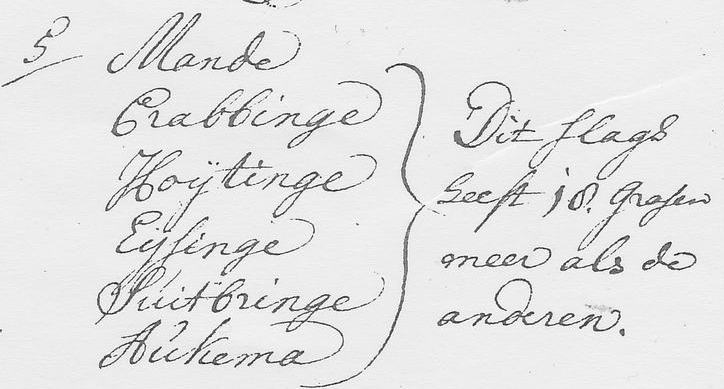 5 Mande
Crabbinge
Hoÿtinge
Eijsinge
Suitbringe
Aukema
Dit slags
heeft 18. Grasen
meer als de
anderen.